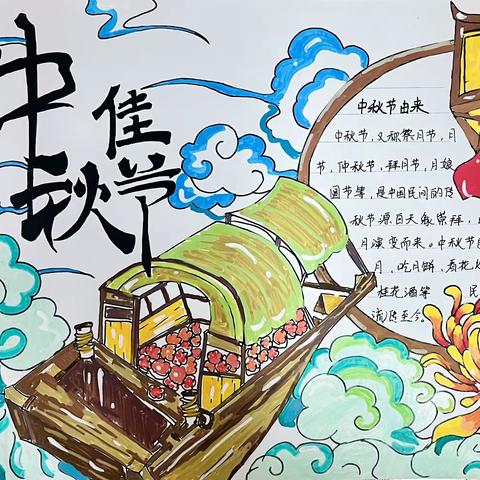 中秋
佳节
中秋节由来
中秋节，又称祭月节，月
节，仲秋节，拜月节，月娘
圆节等，是中国民间的传
秋节源自天象崇拜，
月演变而来。中秋节自
月，吃月饼，看花
桂花酒等 民
流传至今。